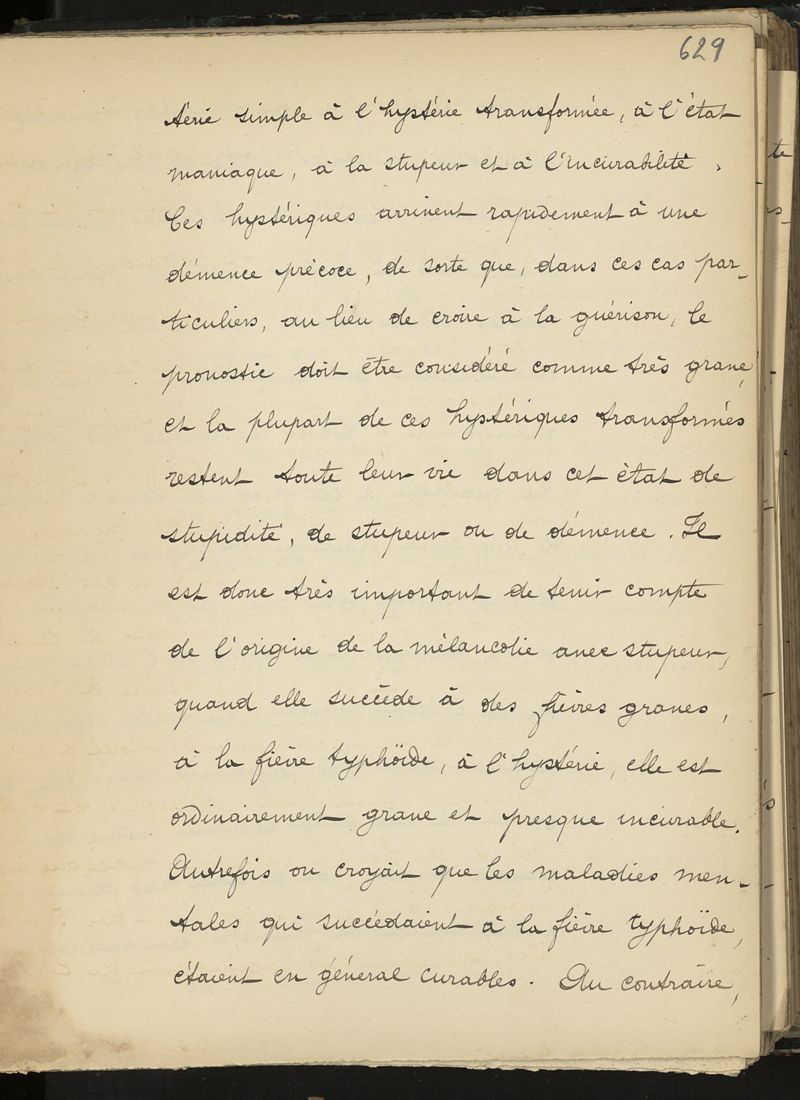 629
térie simple à l'hystérie transformée, à l'état
maniaque, à la stupeur et à l'incurabilité.
Ces hystériques arrivent rapidement à une
démence précoce, de sorte que, dans ces cas par-
ticuliers, au lieu de croire à la guérison, le
pronostic doit être considéré comme très grave,
et la plupart de ces hystériques transformés
restent toute leur vie dans cet état de
stupidité, de stupeur ou de démence. Il
est donc très important de tenir compte
de l'origine de la mélancolie avec stupeur,
quand elle succède à des fièvres graves,
à la fièvre typhöide, à l'hystérie, elle est
ordinairement grave et presque incurable.
Autrefois on croyait que les maladies men-
tales qui succédaient à la fièvre typhoïde,
étaient en général curables. Au contraire,